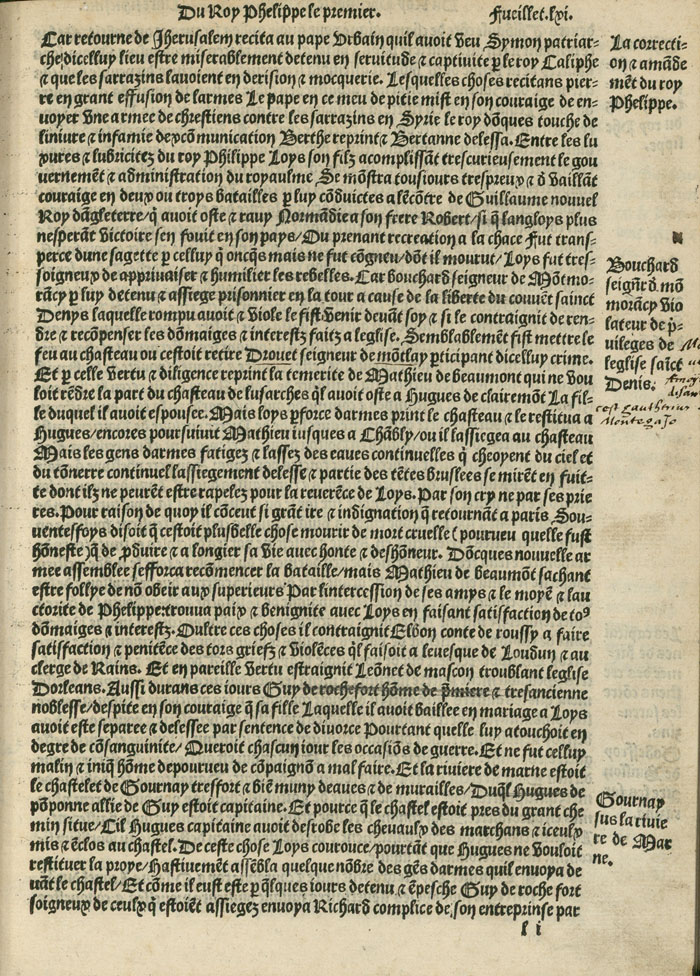 Du Roy Phelippe le premier. Fueillet.lxi.
Car retourne de Jherusalem recita au pape Vrbain quil auoit veu Symon patriar-
che/dicelluy lieu estre miserablement detenu en seruitude & captiuite p̱ le roy Caliphe
& que les sarrazins lauoient en derision & mocquerie. Lesquelles choses recitans pier-
re en grant effusion de larmes Le pape en ce meu de pitie mist en son couraige de en-
uoyer vne armee de chrestiens contre les sarrazins en Syrie le roy dõques touche de
liniure & infamie de excõmunication Berthe reprint & Bertanne delessa. Entre les lu
xures & lubricitez du roy Philippe Loys son filz acomplissãt trescurieusement le gou
uernemẽt & administration du royaulme Se mõstra tousiours trespreux & d̃ vaillãt
couraige en deux ou troys batailles p̱ luy cõduictes a lẽcõtre de Guillaume nouuel
Roy dãgleterre/q̃ auoit oste & rauy Normãdie a son frere Robert/si q̃ langloys plus
nesperãt victoire sen fouit en son pays/Ou prenant recreation a la chace Fut trans-
perce dune sagette p̱ celluy q̃ oncq̃s mais ne fut cõgneu/dõt il mourut/Loys fut tres-
soigneux de appriuaiser & humilier les rebelles. Car bouchard seigneur de Mõtmo-
rãcy p̱ luy detenu & assiege prisonnier en la tour a cause de la liberte du couuẽt sainct
Denys laquelle rompu auoit & viole le fist venir deuãt soy & si le contraignit de ren-
dre & recõpenser les dõmaiges & interestz faitz a leglise. Semblablemẽt fist mettre le
feu au chasteau ou cestoit retire Drouet seigneur de mõtlay p̱ticipant dicelluy crime.
Et p̱ celle vertu & diligence reprint la temerite de Mathieu de beaumont qui ne vou
loit rẽdre la part du chasteau de lusarches q̃l auoit oste a Hugues de clairemõt La fil-
le duquel il auoit espousee. Mais loys p̱force darmes print le chasteau & le restitua a
Hugues/encores poursuiuit Mathieu iusques a Chãbly/ou il lassiegea au chasteau
Mais les gens darmes fatigez & lassez des eaues continuelles q̃ cheoyent du ciel et
du tõnerre continuel lassiegement delesse & partie des tẽtes bruslees se mirẽt en fuit-
te dont ilz ne peurẽt estre rapelez pour la reuerẽce de Loys. Par son cry ne par ses prie
res. Pour raison de quoy il cõceut si grãt ire & indignatiõ q̃ retournãt a paris Sou-
uentesfoys disoit q̃ cestoit plusbelle chose mourir de mort cruelle (pourueu quelle fust
hõneste) q̃ de p̱duire & a longier sa vie auec honte & deshõneur. Dõcques nouuelle ar
mee assemblee sefforca recõmencer la bataille/mais Mathieu de beaumõt sachant
estre follye de nõ obeir aux superieurs Par lintercession de ses amys & le moyẽ & lau
ctorite de Phelippe:trouua paix & benignite auec Loys en faisant satisfaction de to⁹
dõmaiges & interestz. Oultre ces choses il contraignit Elbon conte de roussy a faire
satisfaction & penitẽce des tors griefz & violẽces q̃l faisoit a leuesque de Loudun & au
clerge de Rains. Et en pareille vertu estraignit Leõnet de mascon troublant leglise
Dorleans. Aussi durans ces iours Guy de rochefort hõme de p̃miere & tresancienne
noblesse/despite en son couraige q̃ sa fille Laquelle il auoit baillee en mariage a Loys
auoit este separee & delessee par sentence de diuorce Pourtant quelle luy atouchoit en
degre de cõsanguinite/Queroit chascun iour les occasiõs de guerre. Et ne fut celluy
malin & iniq̃ hõme depourueu de cõpaignõ a mal faire. Et la riuiere de marne estoit
le chastelet de Gournay tresfort & biẽ muny deaues & de murailles/Duq̃l Hugues de
põponne allie de Guy estoit capitaine. Et pource q̃ le chastel estoit pres du grant che
min situe/Cil Hugues capitaine auoit desrobe les cheuaulx des marchans & iceulx
mis & ẽclos au chastel. De ceste chose Loys courouce/pourtãt que Hugues ne vouloit
restituer la proye/Hastiuemẽt assẽbla quelque nõbre des gẽs darmes quil enuoya de
uãt le chastel/Et cõme il eust este p̱ q̃lques iours detenu & ẽpesche Guy de roche fort
soigneux de ceulx q̃ estoiẽt assiegez enuoya Richard complice de son entreprinse par
l i
La correcti-
on & amãde
mẽt du roy
Phelippe.
Bouchard
seignr̃ d̃ mõ
morãcy vio
lateur de p̃-
uileges de
leglise saĩct
Denis.
cest gaultrius
Montegajo
Gournay
sus la riuie
re de Mar
ne.